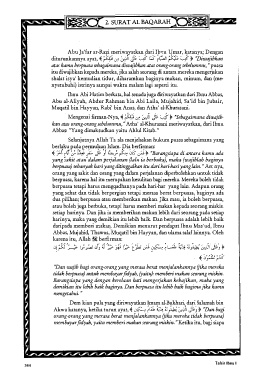 2. SURAT AL BAQARAH
Abu Ja'far ar-Razi meriwayatkan dari Ibnu Umar, katanya; Dengan
diturunkannya ayat, ﴿ كُتِبَ عَلَيْكُمُ الصِّيَامُ كَمَا كُتِبَ عَلَى الَّذِينَ مِن قَبْلِكُمْ ﴾ "Diwajibkan
atas kamu berpuasa sebagaimana diwajibkan atas orang-orang sebelummu," puasa
itu diwajibkan kepada mereka, jika salah seorang di antara mereka mengerjakan
shalat isya' kemudian tidur, diharamkan baginya makan, minum, dan (me-
nyetubuhi) istrinya sampai waktu malam lagi seperti itu.
Ibnu Abi Hatim berkata, hal senada juga diriwayatkan dari Ibnu Abbas,
Abu al-Aliyah, Abdur Rahman bin Abi Laila, Mujahid, Sa'id bin Jubair,
Muqatil bin Hayyan, Rabi' bin Anas, dan Atha' al-Khurasani.
Mengenai firman-Nya, ﴿ كَمَا كُتِبَ عَلَى الَّذِينَ مِن قَبْلِكُمْ ﴾ "Sebagaimana diwajib-
kan atas orang-orang sebelummu," Atha' al-Khurasani meriwayatkan, dari Ibnu
Abbas: "Yang dimaksudkan yaitu Ahlul Kitab."
Selanjutnya Allah Ta'ala menjelaskan hukum puasa sebagaimana yang
berlaku pada permulaan Islam. Dia berfirman:
"Barangsiapa di antara kamu ada
yang sakit atau dalam perjalanan (lalu ia berbuka), maka (wajiblah baginya
berpuasa) sebanyak hari yang ditinggalkan itu dari hari-hari yang lain." Artinya,
orang yang sakit dan orang yang dalam perjalanan diperbolehkan untuk tidak
berpuasa, karena hal itu merupakan kesulitan bagi mereka. Mereka boleh tidak
berpuasa tetapi harus mengqadhanya pada hari-hari yang lain. Adapun orang
yang sehat dan tidak berpergian tetapi merasa berat berpuasa, baginya ada
dua pilihan; berpuasa atau memberikan makan. Jika mau, ia boleh berpuasa,
atau boleh juga berbuka, tetapi harus memberi makan kepada seorang miskin
setiap harinya. Dan jika ia memberikan makan lebih dari seorang pada setiap
harinya, maka yang demikian itu lebih baik. Dan berpuasa adalah lebih baik
daripada memberi makan. Demikian menurut pendapat Ibnu Mas'ud, Ibnu
Abbas, Mujahid, Thawus, Muqatil bin Hayyan, dan ulama salaf lainnya. Oleh
karena itu, Allah ﷻ berfirman:
﴿ وَعَلَى الَّذِينَ يُطِيقُونَهُ فِدْيَةٌ طَعَامُ مِسْكِينٍ فَمَن تَطَوَّعَ خَيْرًا فَهُوَ خَيْرٌ لَّهُ وَأَن تَصُومُوا خَيْرٌ لَّكُمْ إِن
كُنتُمْ تَعْلَمُونَ ﴾
"Dan wajib bagi orang-orang yang merasa berat menjalankannya (jika mereka
tidak berpuasa) untuk membayar fidyah, (yaitu) memberi makan seorang miskin.
Barangsiapa yang dengan kerelaan hati mengerjakan kebajikan, maka yang
demikian itu lebih baik baginya. Dan berpuasa itu lebih baik bagimu jika kamu
mengetahui."
Demikian pula yang diriwayatkan Imam al-Bukhari, dari Salamah bin
Akwa katanya, ketika turun ayat, ﴿ وَعَلَى الَّذِينَ يُطِيقُونَهُ فِدْيَةٌ طَعَامُ مِسْكِينٍ ﴾ "Dan bagi
orang-orang yang merasa berat menjalankannya (jika mereka tidak berpuasa)
membayar fidyah, yaitu memberi makan seorang miskin." Ketika itu, bagi siapa